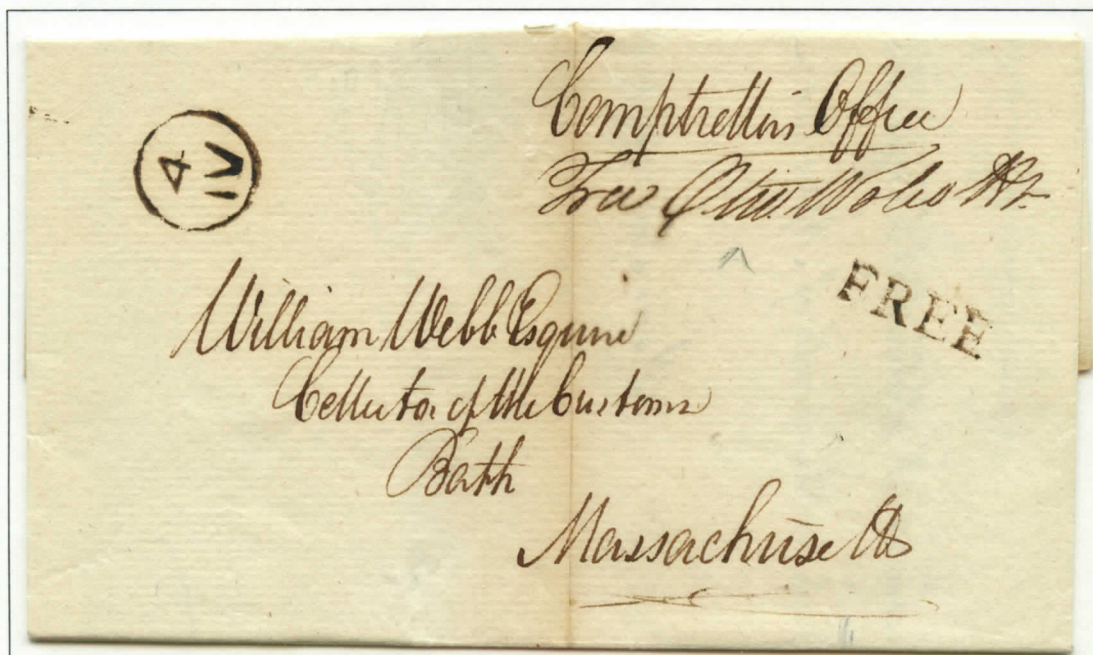 4
IV
Comptrollers Office
Free Oliv. Wolcott Jr.
FREE
William Webb Esquire
Collector of the Customs
Bath
Massachusetts